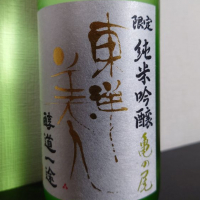 限定
純米吟醸
亀の尾
東洋
美人
醇道一途